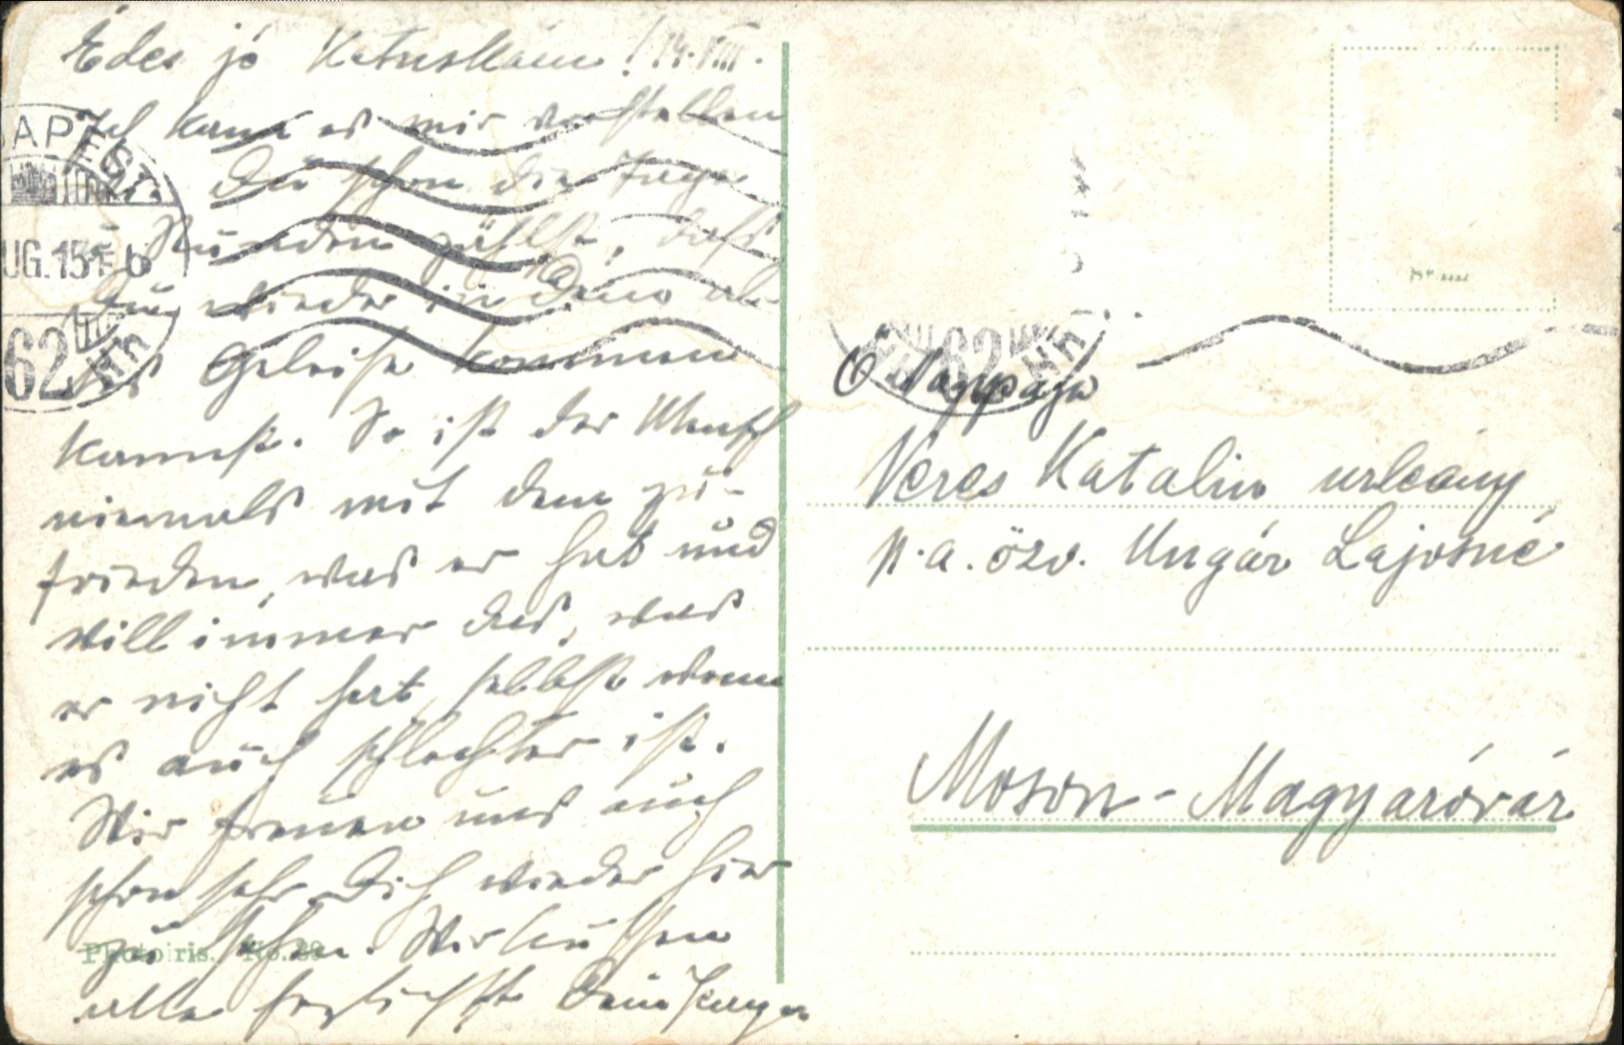 Édes jó Katuskám! 14.VIII.
Ich kann es mir vorstellen
Du schon die Tage
Stunden zählst, daß
Du wieder in Dein al-
tes Geleise kommen
kannst. So ist der Mensch
niemals mit dem zu-
frieden, was er hat und
will immer das, was
er nicht hat, selbst wenn
es auch schlechter ist.
Wir freuen uns auch
schon sehr Dich wieder hier
zu sehen. Wir küssen
alle herzlichst Dein
APEST
UG.15
62
62
Ő Nagysága
Veres Katalin urleány
p.a. özv. Ungár Lajosné
Moson-Magyaróvár